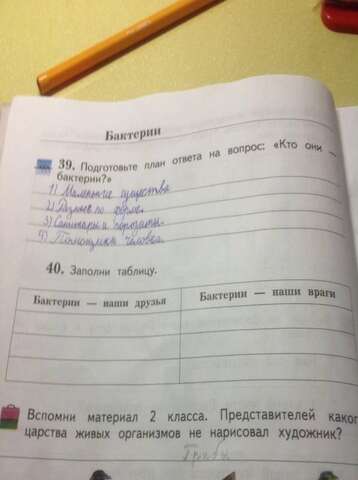 Бактерии
39. Подготовьте план ответа на вопрос: «Кто они —
бактерии?»
1) Маленькие существа
2) Разные по форме.
3) Санитары и паразиты.
4) Помощники человека.
40. Заполни таблицу.
Бактерии — наши друзья Бактерии — наши враги
Вспомни материал 2 класса. Представителей каког
царства живых организмов не нарисовал художник?
Грибы